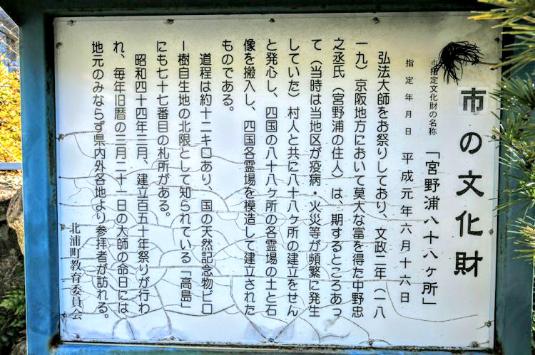 市の文化財
指定文化財の名称 「宮野浦八十八ヶ所」
指定年月日 平成元年六月十六日
弘法大師をお祭りしており、文政二年（一八
一九）京阪地方において莫大な富を得た中野忠
之丞氏（宮野浦の住人）は、一期するところあっ
て（当時は当地区が疫病・火災等が頻繁に発生
していた）村人と共に八十八ヶ所の建立をせん
と発心し、四国の八十八ヶ所の各霊場の土と石
像を搬入し、四国各霊場を模造して建立された
ものである。
道程は約十二キロあり、国の天然記念物ビロ
ー樹自生地の北限として知られている「高島」
にも七十七番目の札所がある。
昭和四十四年三月、建立百五十年祭りが行わ
れ、毎年旧暦の三月二十一日の大師の命日には、
地元のみならず県内外各地より参拝者が訪れる。
北浦町教育委員会